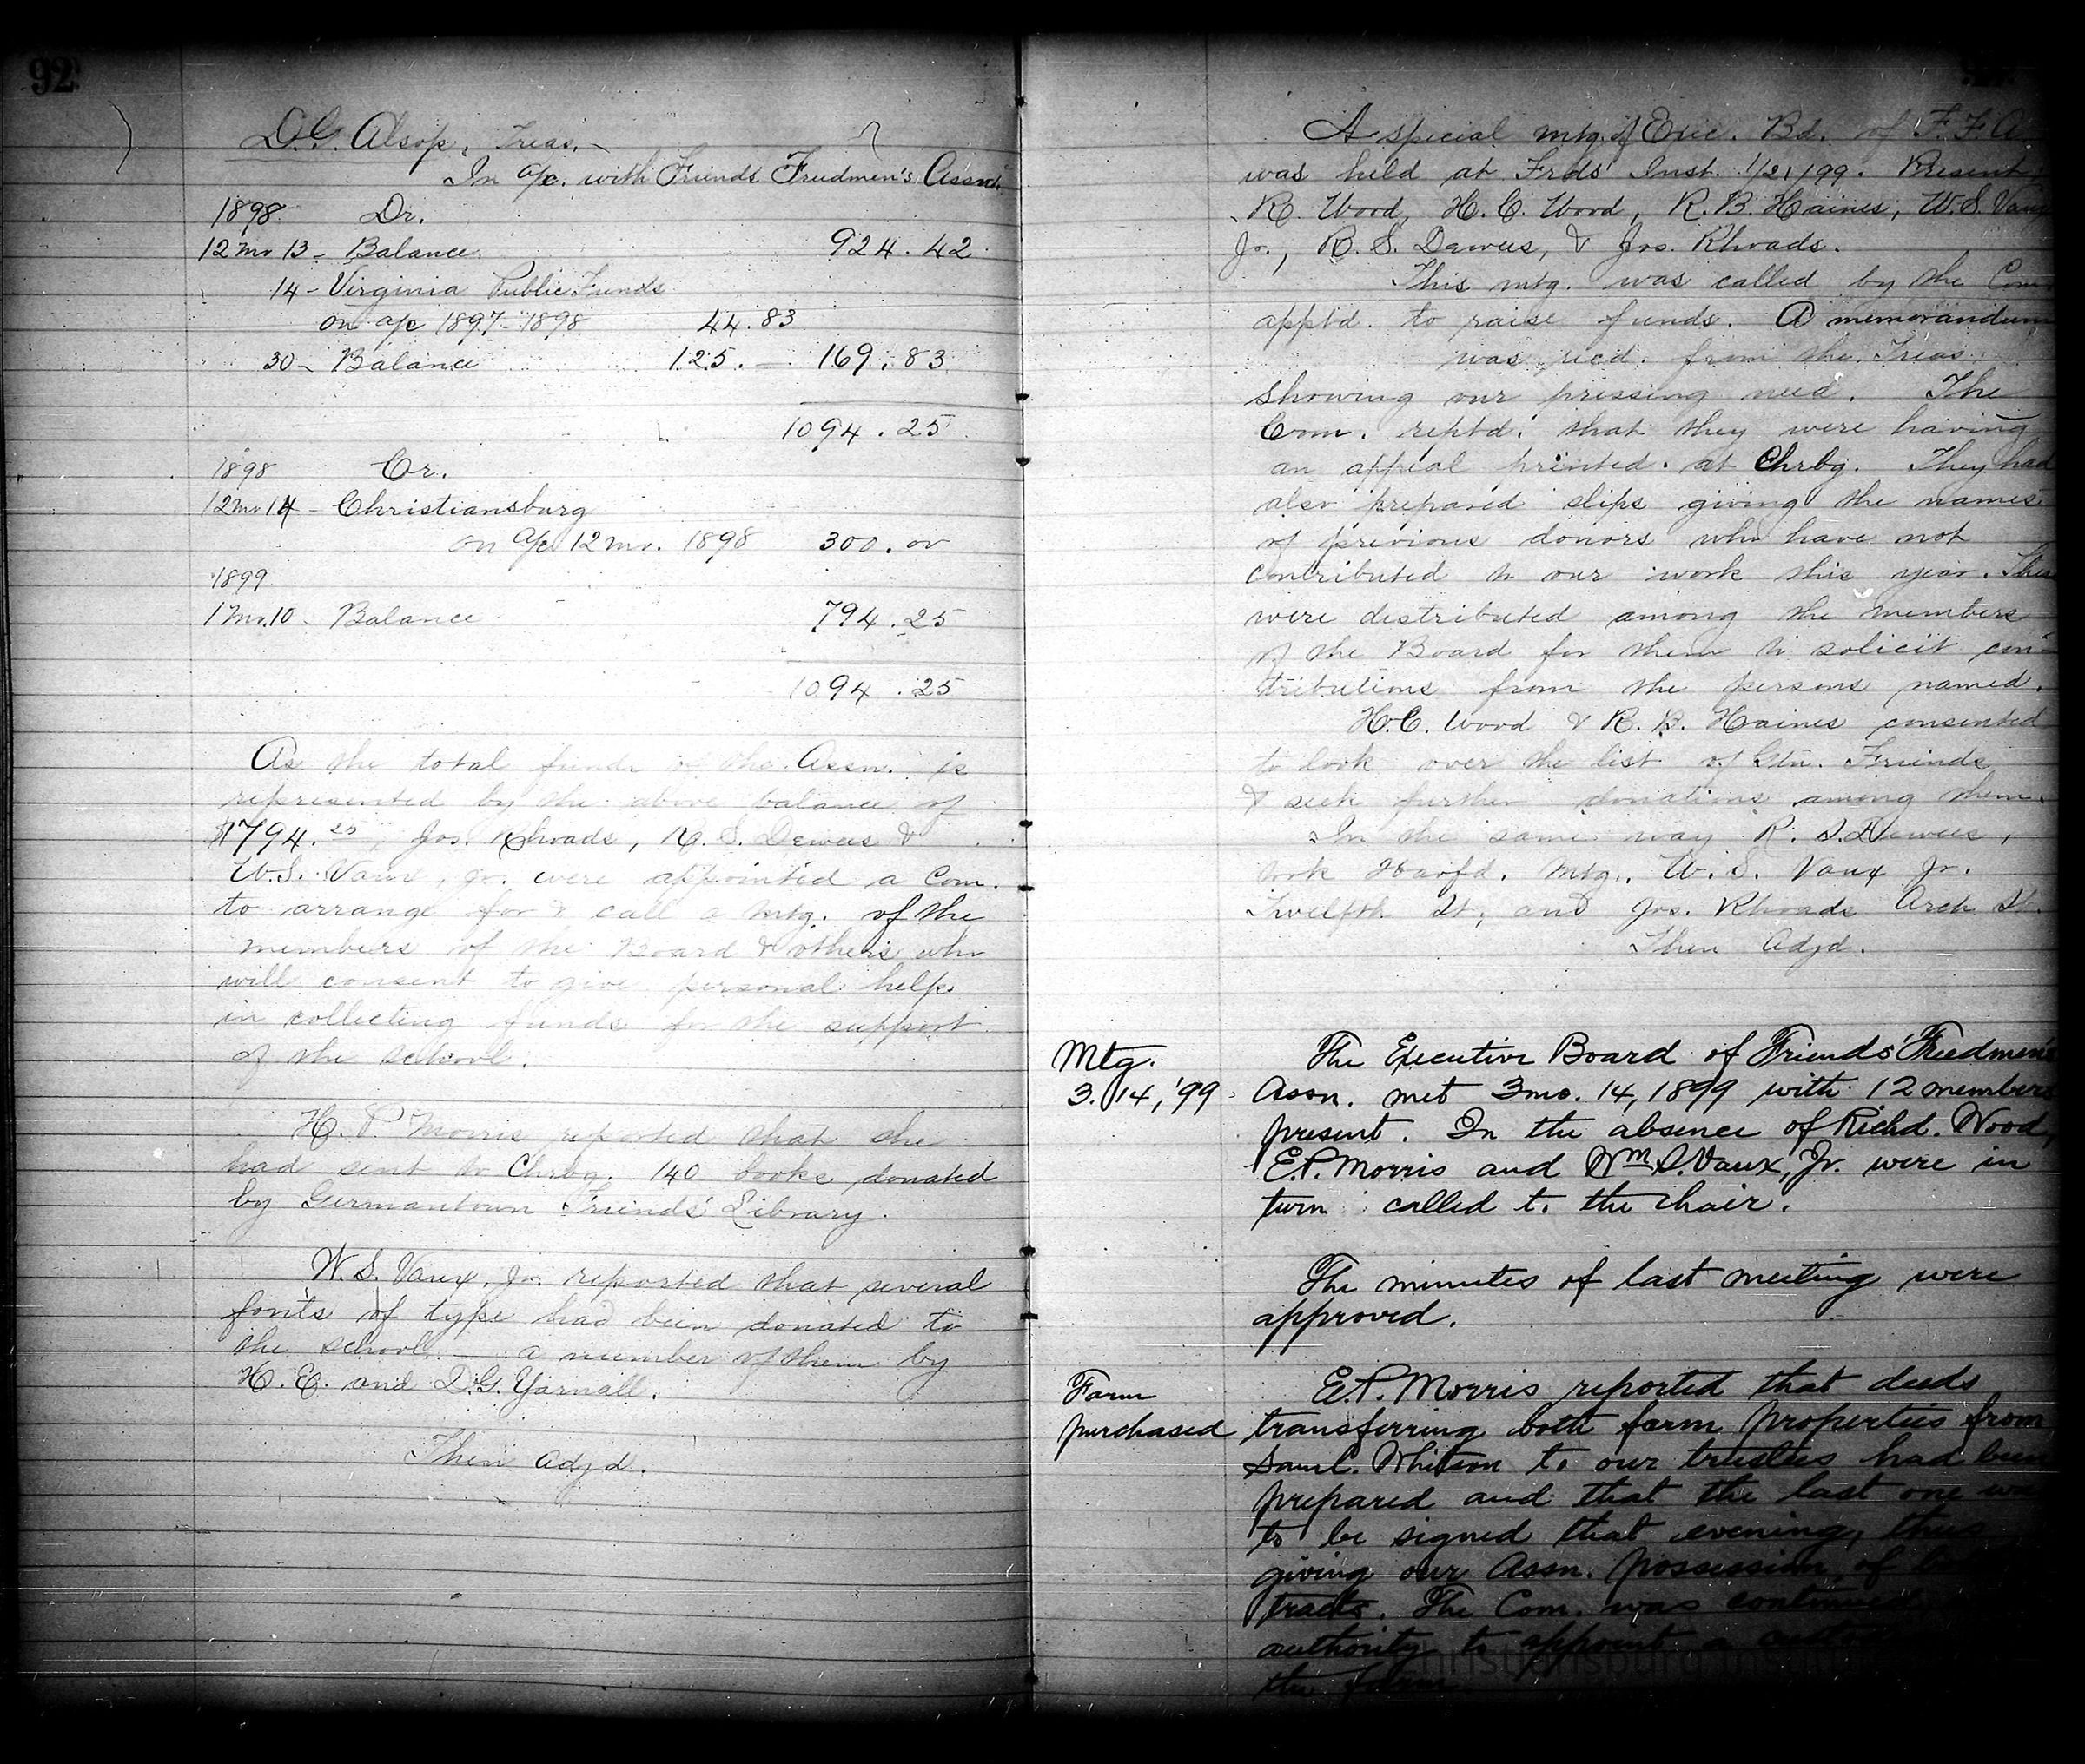 92
D.G. Alsop, Treas.
In a/c. with Friends Freedmen's Assn.
1898 Dr.
12 Mo 13 - Balance 924.42
14 - Virginia Public Funds
on a/c 1897-1898 44.83
30 - Balance 125. — 169.83
1094.25
1898 Cr.
12 Mo 14 - Christiansburg
on a/c 12 mo. 1898 300.00
1899
1 Mo. 10 - Balance 794.25
1094.25
As the total funds in the Assn. is
represented by the above balance of
$794.25, Jos. Rhoads, R. S. Dewees &
W.S. Vaux, Jr. were appointed a Com.
to arrange for & call a mtg. of the
members of the Board & others who
will consent to give personal help
in collecting funds for the support
of the school.
H. P. Morris reported that she
had sent to Chrbg. 140 books donated
by Germantown Friends' Library.
W. S. Vaux, Jr. reported that several
fonts of type had been donated to
the school — a number of them by
H. E. and D.G. Yarnall.
Then adjd.
A special mtg. of Exec. Bd. of F. F. A.
was held at Frds' Inst. 1/21/99. Present:
R. Wood, H. C. Wood, R. B. Haines, W. S. Vaux
Jr., R. S. Dewees, & Jos. Rhoads.
This mtg. was called by the Com.
apptd. to raise funds. A memorandum
was recd. from the Treas.
showing our pressing need. The
Com. reptd. that they were having
an appeal printed at Chrbg. They had
also prepared slips giving the names
of previous donors who have not
contributed to our work this year. These
were distributed among the members
of the Board for them to solicit con-
tributions from the persons named.
H. C. Wood & R. B. Haines consented
to look over the list of Gtn. Friends
& seek further donations among them.
In the same way R. S. Dewees,
took Havfd. Mtg., W. S. Vaux Jr.
Twelfth St., and Jos. Rhoads Arch St.
Then Adjd.
Mtg.
3. 14, '99
The Executive Board of Friends' Freedmen's
Assn. met 3mo. 14, 1899 with 12 members
present. In the absence of Richd. Wood,
E.P. Morris and Wm. S. Vaux, Jr. were in
turn called to the chair.
The minutes of last meeting were
approved.
Farm
purchased
E.P. Morris reported that deeds
transferring both farm properties from
Saml. Whitson to our trustees had been
prepared and that the last one was
to be signed that evening, thus
giving our Assn. possession of
tracts. The Com. was continued
authority to appoint a
the farm.